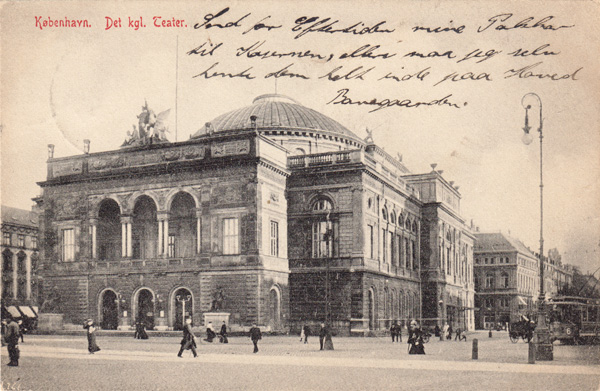 København. Det kgl. Teater.
Send for Eftertiden mine Pakker
til Kasernen, ellers maa jeg selv
hente dem helt inde paa Hoved
Banegaarden.